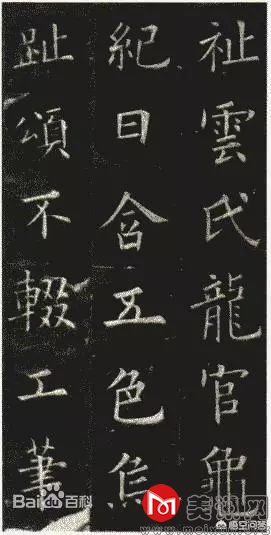 祉雲氏龍官龜
紀日含五色烏
趾頌不輟工筆
Bai du 百科
M
悟空问答